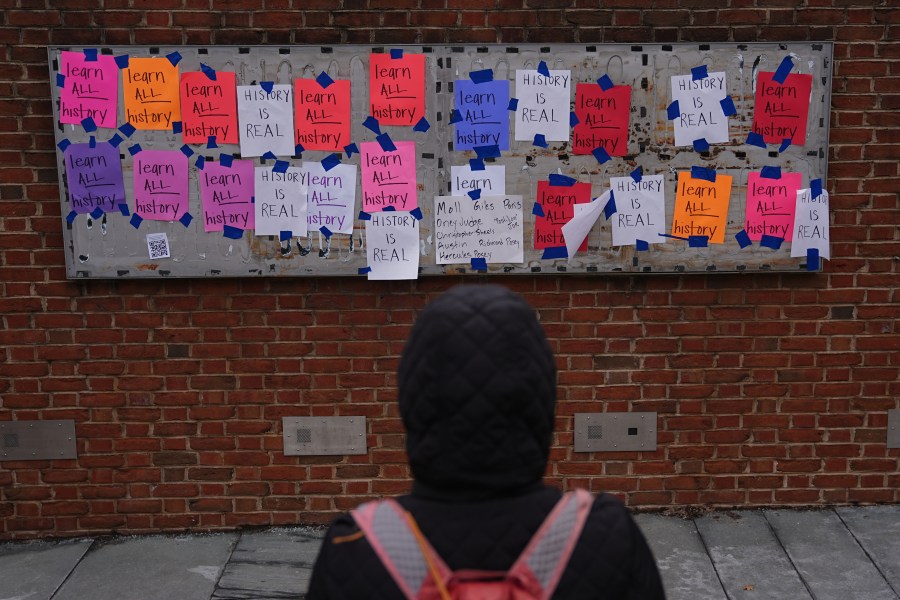 learn
ALL
history
learn
ALL
history
learn
ALL
history
HISTORY
IS
REAL
learn
ALL
history
learn
ALL
history
learn
ALL
history
HISTORY
IS
REAL
learn
ALL
history
HISTORY
IS
REAL
learn
ALL
history
learn
ALL
history
learn
ALL
history
learn
ALL
history
HISTORY
IS
REAL
learn
ALL
history
learn
ALL
history
HISTORY
IS
REAL
learn
ALL
Moll Giles Paris
Oney Judge
Christopher Sheels
Austin Richmond Posey
Hercules Posey
learn
ALL
history
HISTORY
IS
REAL
learn
ALL
history
learn
ALL
history
HISTORY
IS
REAL